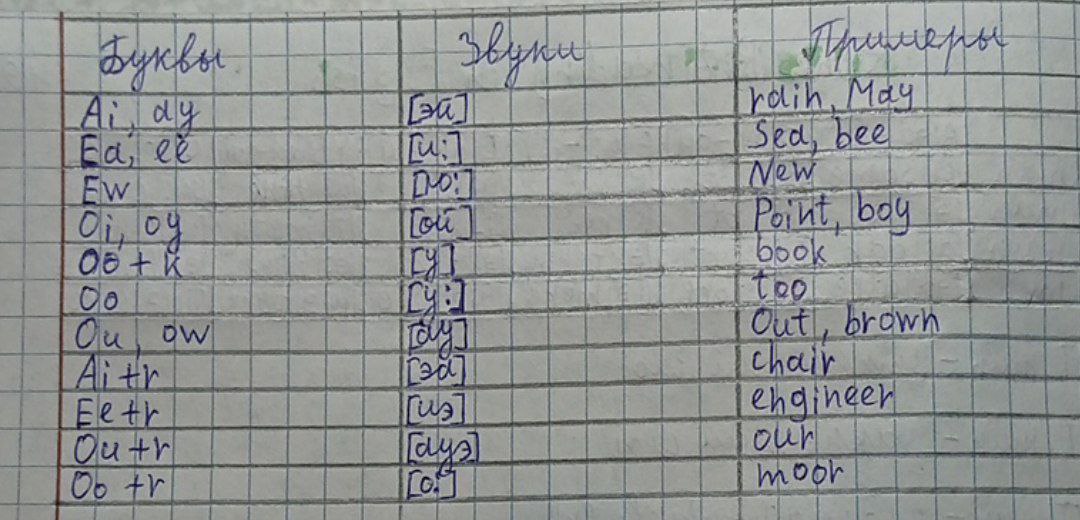 Буквы Звуки Примеры
Ai, ay [эй] rain, May
Ea, ee [и:] Sea, bee
Ew [ю:] New
Oi, oy [ой] Point, boy
Oo + k [у] book
Oo [у:] too
Ou, ow [ау] Out, brown
Ai +r [эа] chair
Ee +r [иэ] engineer
Ou +r [ауэ] our
Oo +r [о:] moor